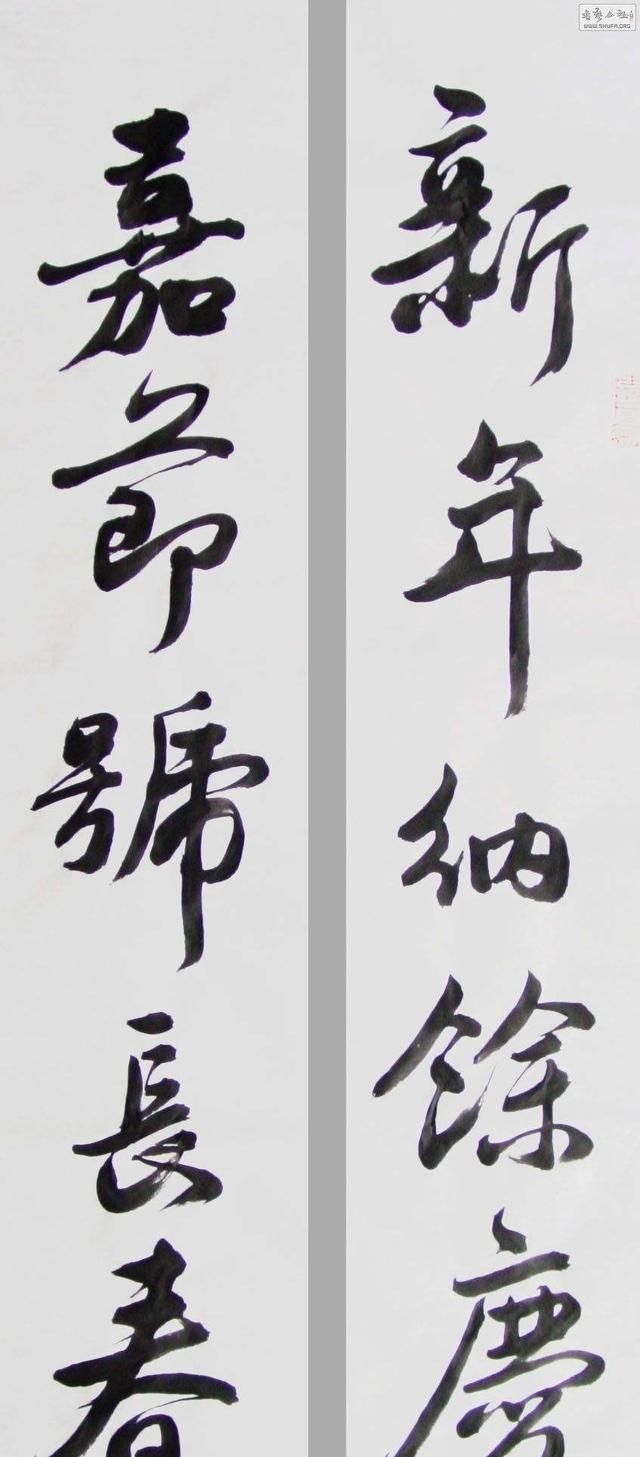 新年納餘慶
嘉節號長春
WWW.SHUFA.ORG